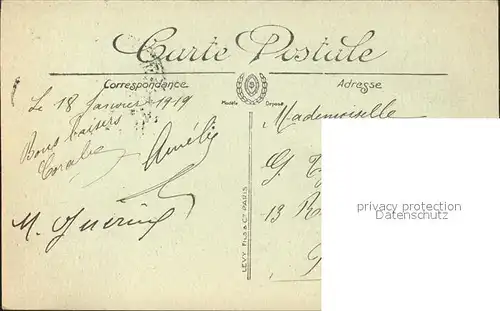 Carte Postale
Correspondance
Adresse
Modèle Déposé
Le 18 Janvier 1919
Bons baisers
Coralie
Amélie
M. Guerin
LEVY FILS & Cie PARIS
Mademoiselle
G.
13
privacy protection
Datenschutz